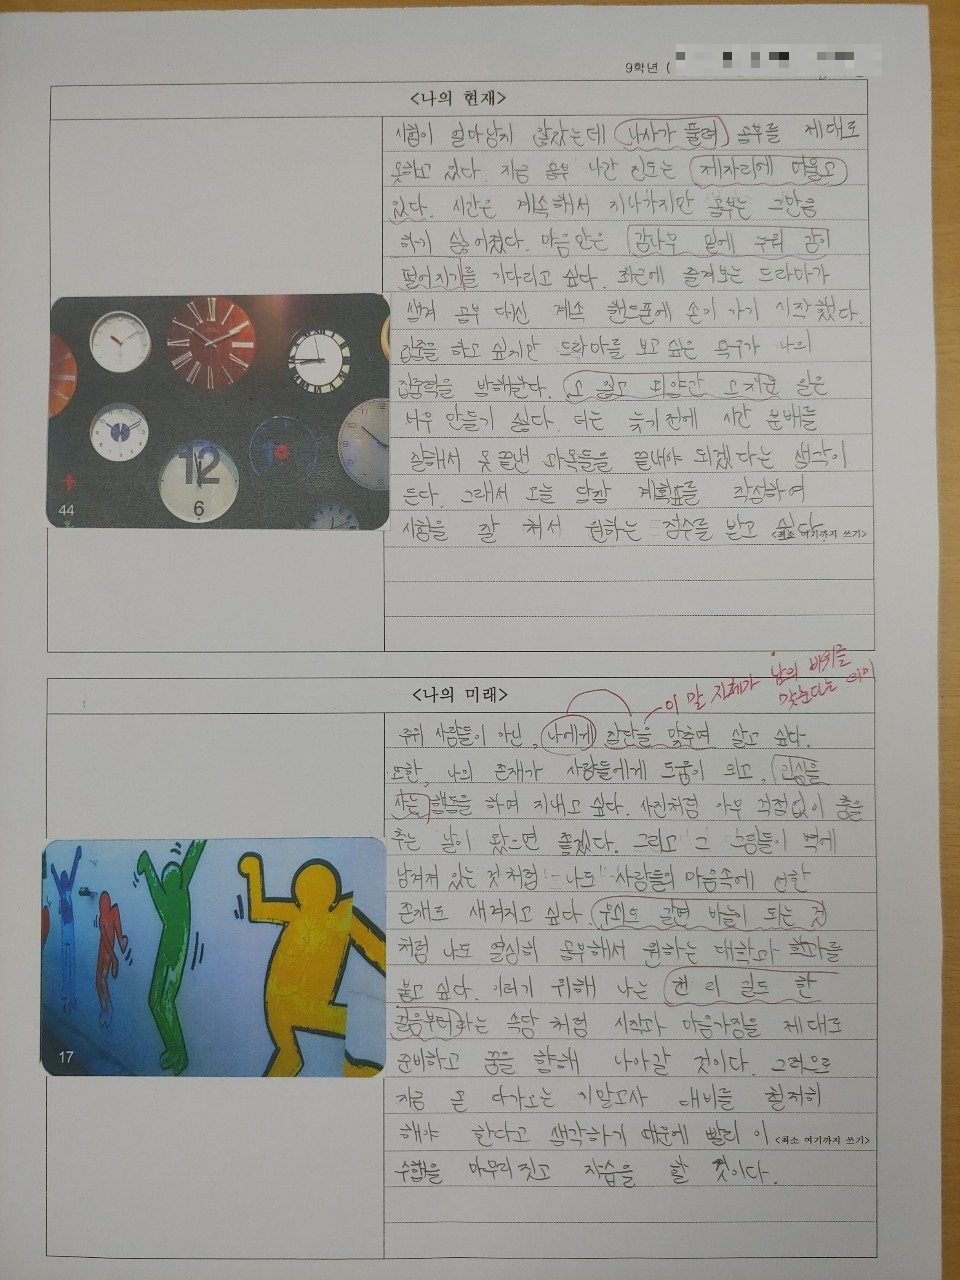 9학년 (
<나의 현재>
시험이 얼마남지 않았는데 나사가 풀려 공부를 제대로
못하고 있다. 지금 공부 나간 진도는 제자리에 머물고
있다. 시간은 계속해서 지나가지만 공부는 그만큼
하기 싫어졌다. 마음만은 감나무 밑에 누워 감이
떨어지기를 기다리고 싶다. 최근에 즐겨보는 드라마가
생겨 공부 대신 계속 핸드폰에 손이 가기 시작했다.
집중을 하고 싶지만 드라마를 보고 싶은 욕구가 나의
집중력을 방해한다. 소 잃고 외양간 고치는 일은
더는 늦기전에 시간 분배를
잘해서 못 끝낸 과목들을 끝내야 되겠다는 생각이
든다. 그래서 오늘 당장 계획표를 작성하여
시험을 잘 쳐서 원하는 점수를 받고 싶다.
<최소 여기까지 쓰기>
12
6
44
이 말 자체가 남의 비위를
맞춘다는 의미
<나의 미래>
주위 사람들이 아닌, 나에게 장단을 맞추며 살고 싶다.
또한, 나의 존재가 사람들에게 도움이 되고, 인심을
사는 행동을 하며 지내고 싶다. 사진처럼 아무 걱정없이 춤을
추는 날이 왔으면 좋겠다. 그리고 그 그림들이 벽에
남겨져 있는 것처럼 나도 사람들의 마음속에 선한
존재로 새겨지고 싶다. 무쇠도 갈면 바늘이 되는 것
처럼 나도 열심히 공부해서 원하는 대학과 학과를
붙고 싶다. 이러기 위해 나는 천 리 길도 한
걸음부터라는 속담처럼 시작과 마음가짐을 제대로
준비하고 꿈을 향해 나아갈 것이다. 그러므로
지금 곧 다가오는 기말고사 대비를 철저히
해야 한다고 생각하기 때문에 빨리 이
<최소 여기까지 쓰기>
수행을 마무리 짓고 자습을 할 것이다.
17